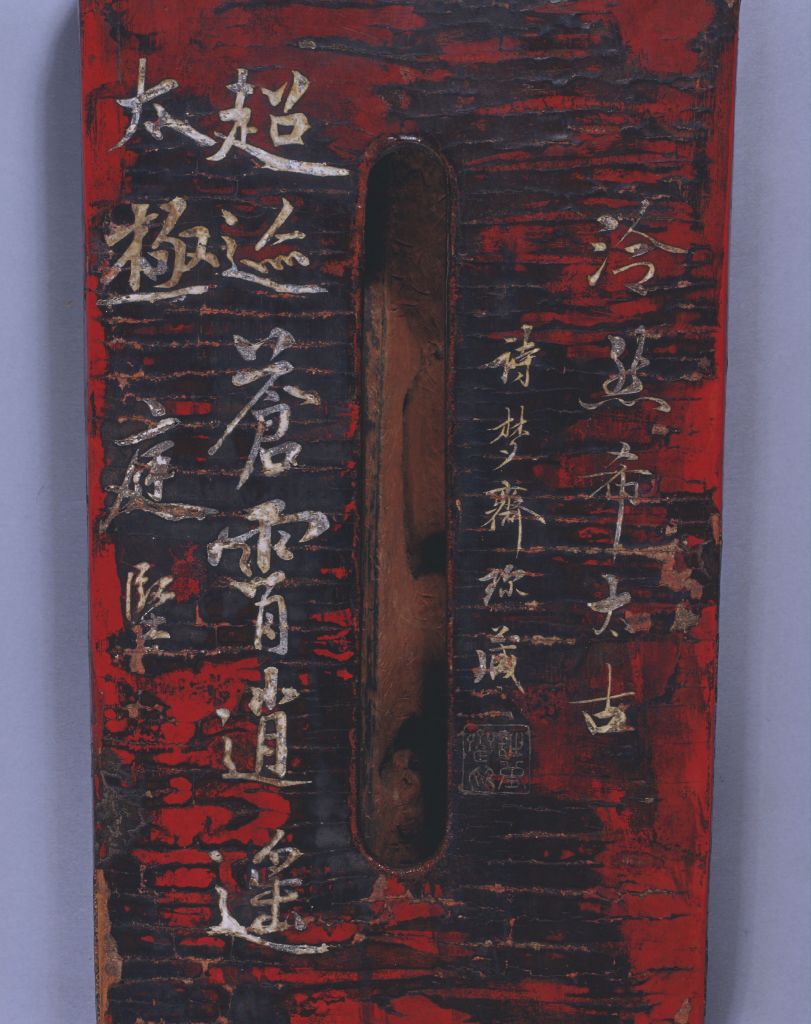 泠然希太古
詩梦齋珍藏
超迹蒼霄逍遙
太極 庭堅